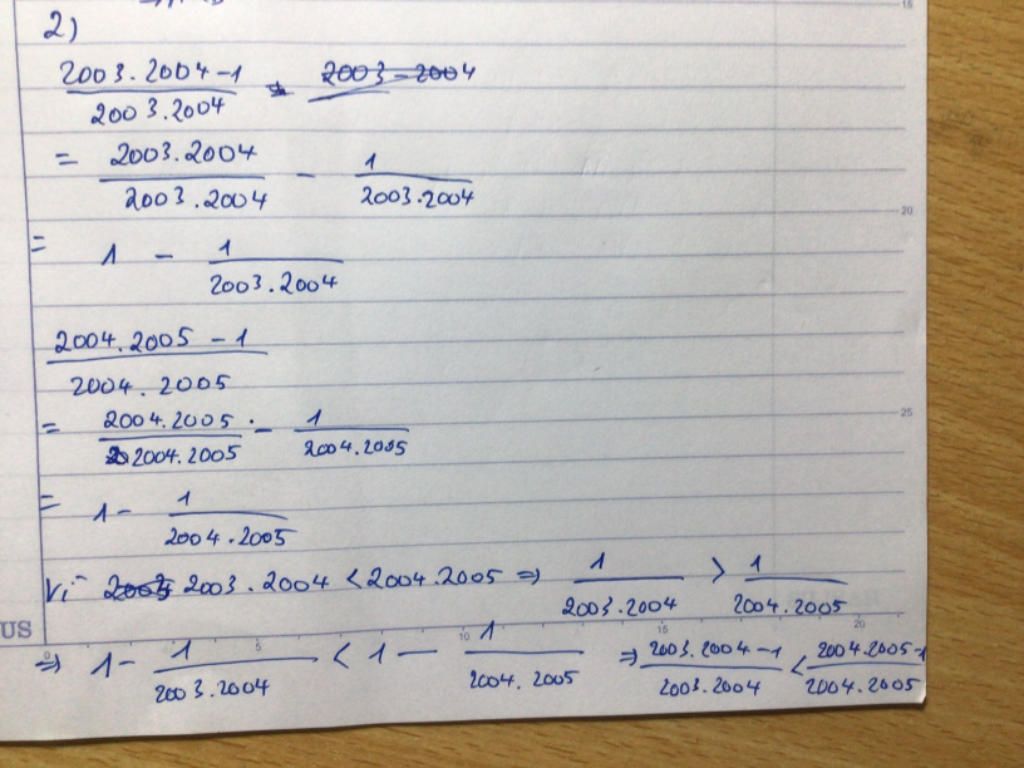 2)
2003.2004-1 / 2003.2004
= 2003.2004 / 2003.2004 - 1 / 2003.2004
= 1 - 1 / 2003.2004
2004.2005 - 1 / 2004.2005
= 2004.2005 / 2004.2005 - 1 / 2004.2005
= 1 - 1 / 2004.2005
Vì 2003.2004 < 2004.2005 => 1 / 2003.2004 > 1 / 2004.2005
=> 1 - 1 / 2003.2004 < 1 - 1 / 2004.2005 => 2003.2004-1 / 2003.2004 < 2004.2005-1 / 2004.2005
15
20
25
US
0 5 10 15 20